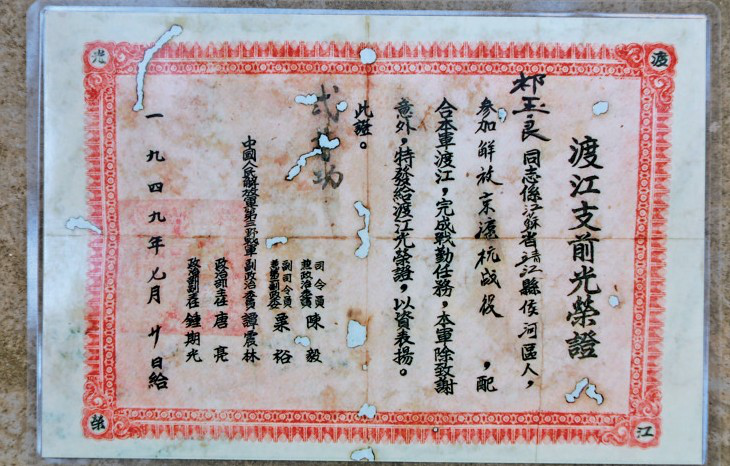 渡江支前光榮證
祁玉良同志係江蘇省靖江縣侯河區人，
參加解放京滬杭战役，配
合本軍渡江，完成戰勤任務，本軍除致謝
意外，特發給渡江光榮證，以資表揚。
此證。
貳等功
中國人民解放軍第三野戰軍
司令員兼政治委員 陳毅
副司令員兼第二副政委 粟裕
副政治委員 譚震林
政治部主任 唐亮
政治部副主任 鍾期光
一九四九年七月廿日給
渡
江
光
榮